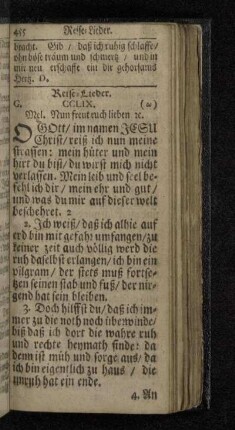 455 Reise-Lieder.
bracht. Gib / daß ich ruhig schlaffe/
ohn böse träum und schmertz / und in
mir neu erschaffe ein dir gehorsams
Hertz. D.
Reise-Lieder.
G. CCLIX. (2)
Mel. Nun freut euch lieben ꝛc.
O GOtt / im namen JESU
Christ / reiß ich nun meine
strassen: mein hüter und mein
hirt du bist / du wirst mich nicht
verlassen. Mein leib und seel be-
fehl ich dir / mein ehr und gut /
und was du mir auf dieser welt
beschehret. 2
2. Ich weiß / daß ich alhie auf
erd bin mit gefahr umfangen / zu
keiner zeit auch völlig werd die
ruh daselbst erlangen / ich bin ein
pilgram / der stets muß fortse-
tzen seinen stab und fuß / der nir-
gend hat sein bleiben.
3. Doch hilffst du / daß ich im-
mer zu die noth noch überwinde /
biß daß ich dort die wahre ruh
und rechte heymath finde: da
denn ist müh und sorge aus / da
ich bin eigentlich zu haus / die
unruh hat ein ende.
4. An